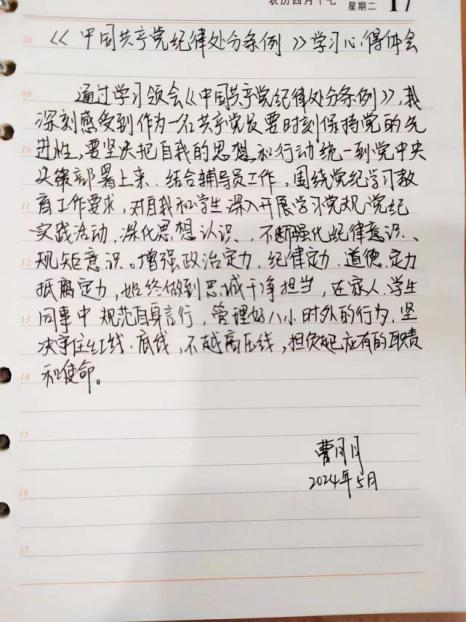 农历四月十七 星期二 17
《中国共产党纪律处分条例》学习心得体会
通过学习领会《中国共产党纪律处分条例》,我
深刻感受到作为一名共产党员要时刻保持党的先
进性,要坚决把自我的思想和行动统一到党中央
决策部署上来.结合辅导员工作,围绕党纪学习教
育工作要求,对自我和学生深入开展学习党规党纪
实践活动,深化思想认识、不断强化纪律意识、
规矩意识。增强政治定力、纪律定力、道德定力
抵腐定力,始终做到忠诚干净担当,在家人、学生
同事中规范自身言行,管理好八小时外的行为,坚
决守住红线、底线,不越高压线,担负起应有的职责
和使命。
曹月月
2024年5月
09
10
11
12
13
14
15
16
17